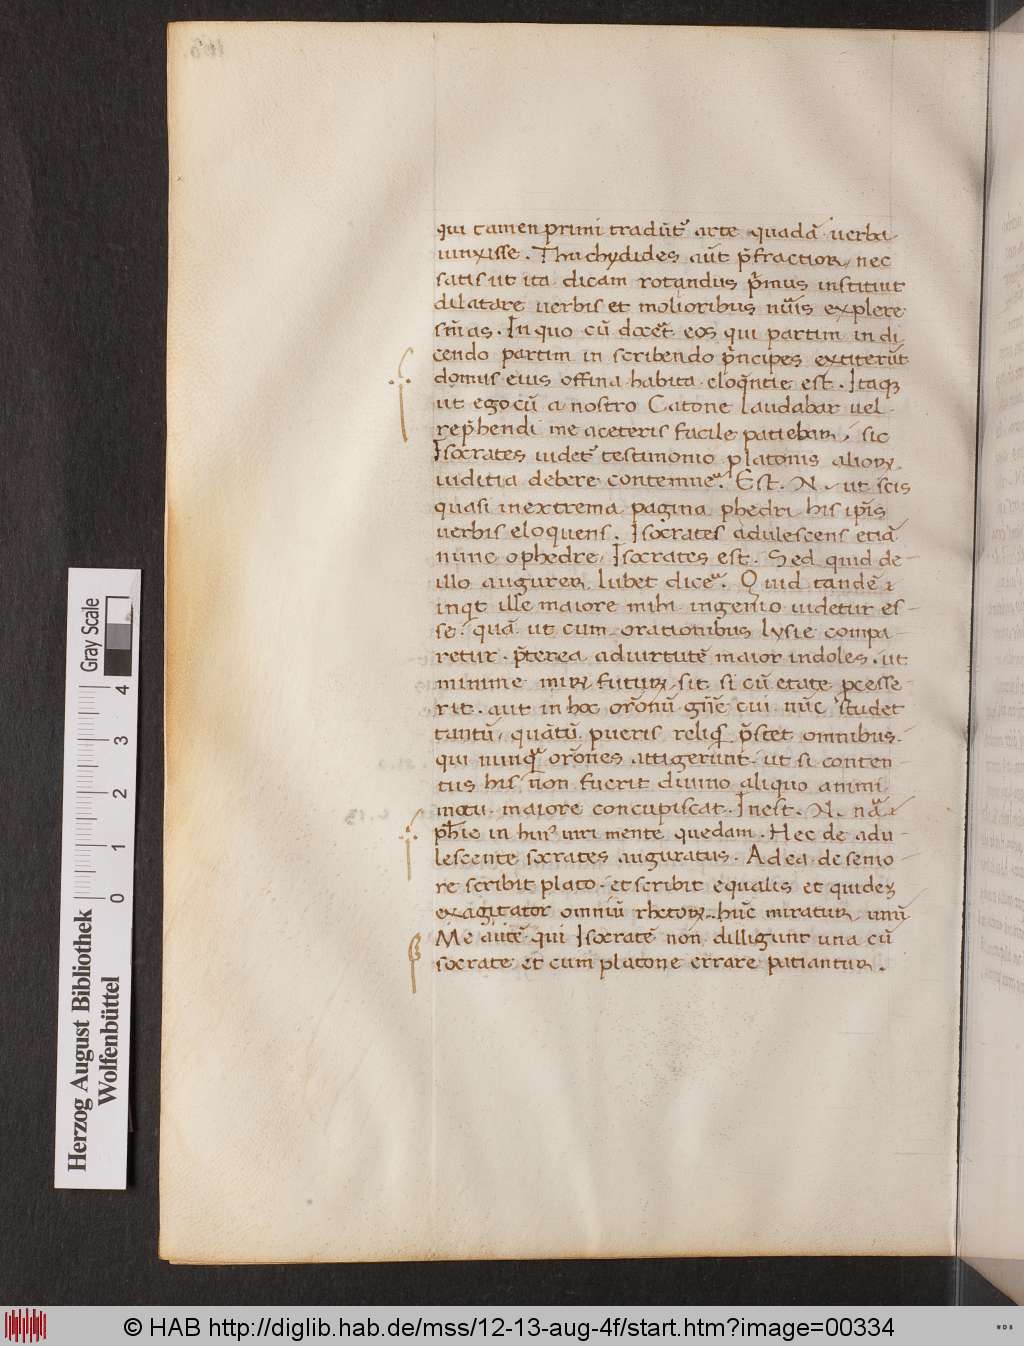 qui tamen primi tradūt᷑ arte quadā verba
iunxisse. Thuchydides aūt p̄fractior, nec
satis ut ita dicam rotandus p̄mus instituit
dilatare verbis et molioribus nūis explere
sn̄ias. In quo cū docēt eos qui partim in di
cendo partim in scribendo p̄ncipes extiterūt
domus eius offina habita eloq̄ntie est. Itaqꝫ
ut ego cū a nostro Catone laudabar vel
rep̄hendi me aceteris facile patiebaꝝ, sic
Isocrates videt᷑ testimonio platonis alioꝝ
iuditia debere contemne͛. Est. N. ut scis
quasi in extrema pagina phedri his ip̄is
verbis eloquens. Isocrates adulescens etiā
nunc o phedre, Isocrates est. Sed quid de
illo augureꝝ lubet dice͛. Quid tandē
inqt ille maiore mihi ingenio videtur es-
se. quā ut cum orationibus lysie compa-
retur. p̄terea ad virtutē maior indoles. ut
minime miꝝ futuꝝ sit si cū etate ꝓcesse
rit. aut in hoc or̄onū gn̄e cui nūc studet
tantū, quātū pueris reliqꝭ p̄stet omnibus.
qui nunqͣ or̄ones attigerūnt. ut si conten
tus his n̄on fuerit divino aliquo animi
motu maiore concupiscat. Inest. N. nāͣ
ph̄ie in huiꝰ viri mente quedam. Hec de adu-
lescente socrates auguratus. Ad ea de senio-
re scribit plato. et scribit equalis et quideꝫ
exagitator omniū rhetoꝝ. hūc miratuꝝ unū
Me autē qui Isocratē non dilligunt una cū
socrate et cum platone errare patiantuꝝ.
Herzog August Bibliothek
Wolfenbüttel
0 1 2 3 4
Gray Scale
© HAB http://diglib.hab.de/mss/12-13-aug-4f/start.htm?image=00334